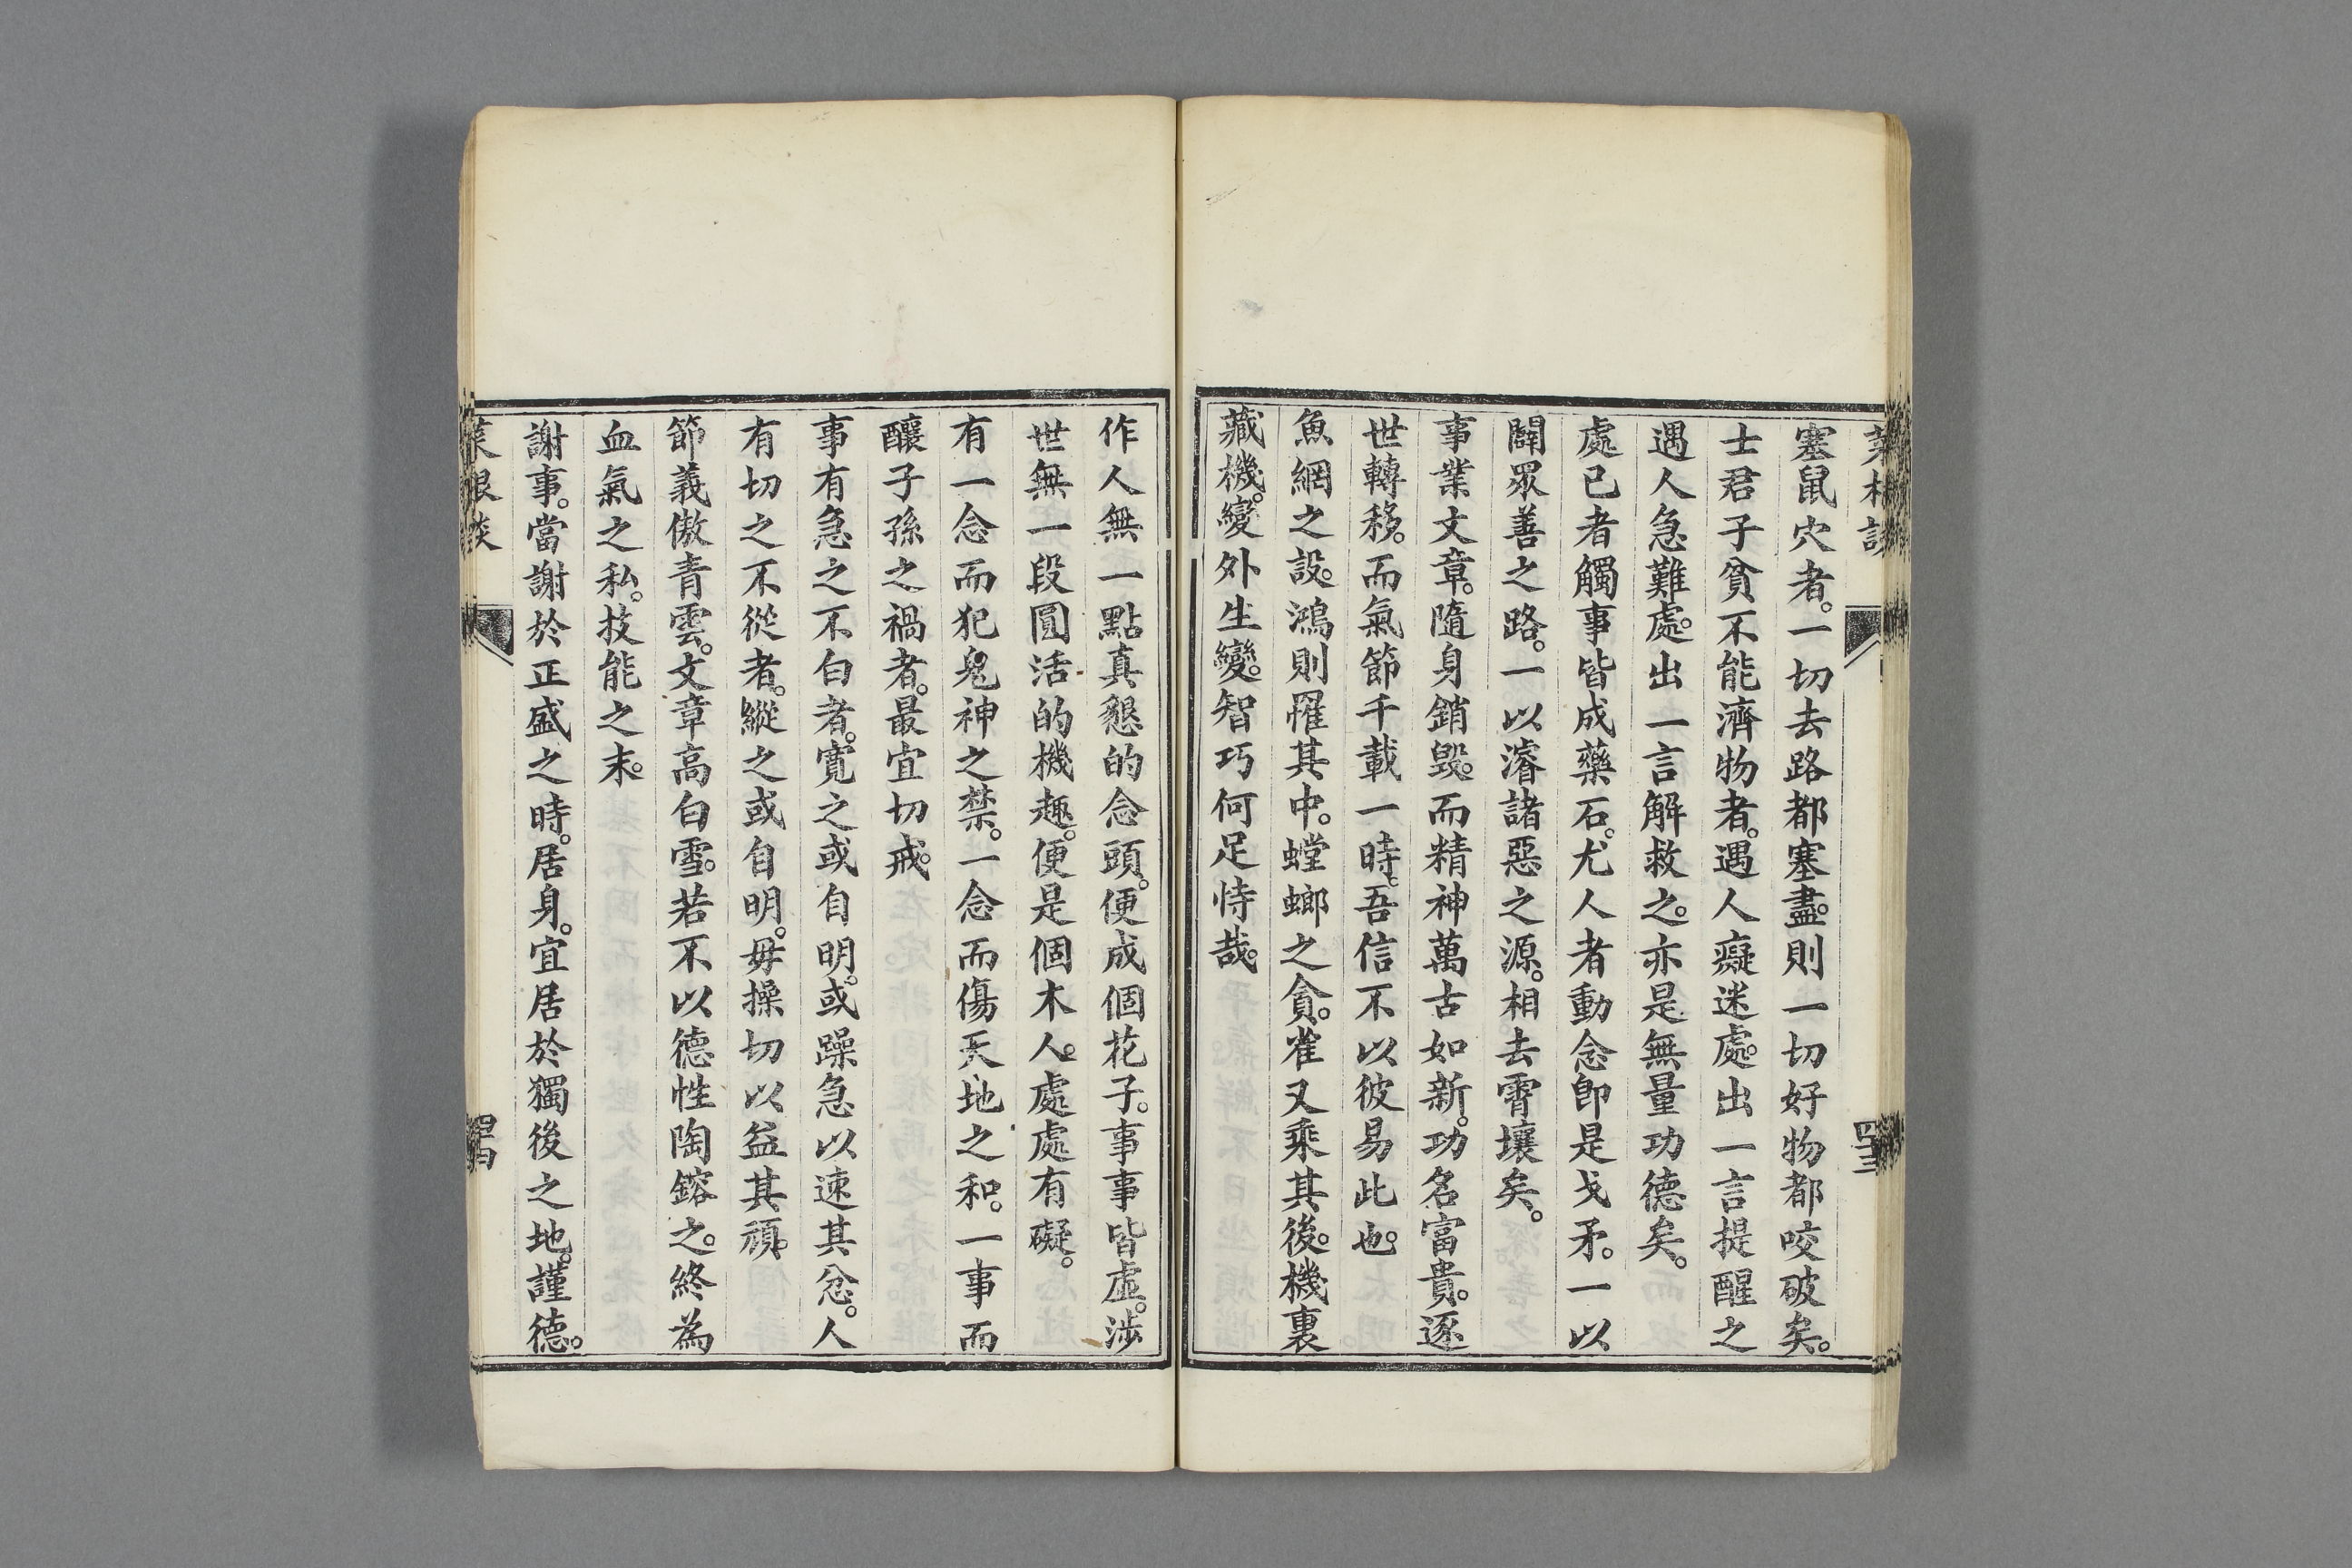 塞鼠穴者。一切去路都塞盡。則一切好物都咬破矣。
士君子貧不能濟物者。遇人癡迷處。出一言提醒之
遇人急難處。出一言解救之。亦是無量功德矣。
處已者觸事皆成藥石。尤人者動念卽是戈矛。一以
闢眾善之路。一以濬諸惡之源。相去霄壤矣。
事業文章。隨身銷毀。而精神萬古如新。功名富貴。逐
世轉移。而氣節千載一時。吾信不以彼易此也。
魚網之設。鴻則罹其中。螳螂之貪。雀又乘其後。機裏
藏機。變外生變。智巧何足恃哉。
作人無一點真懇的念頭。便成個花子。事事皆虛。涉
世無一段圓活的機趣。便是個木人。處處有礙。
有一念而犯鬼神之禁。一念而傷天地之和。一事而
釀子孫之禍者。最宜切戒。
事有急之不白者。寬之或自明。或躁急以速其忿。人
有切之不從者。縱之或自明。毋操切以益其頑。
節義傲青雲。文章高白雪。若不以德性陶鎔之。終為
血氣之私。技能之末。
謝事。當謝於正盛之時。居身。宜居於獨後之地。謹德。
菜根談